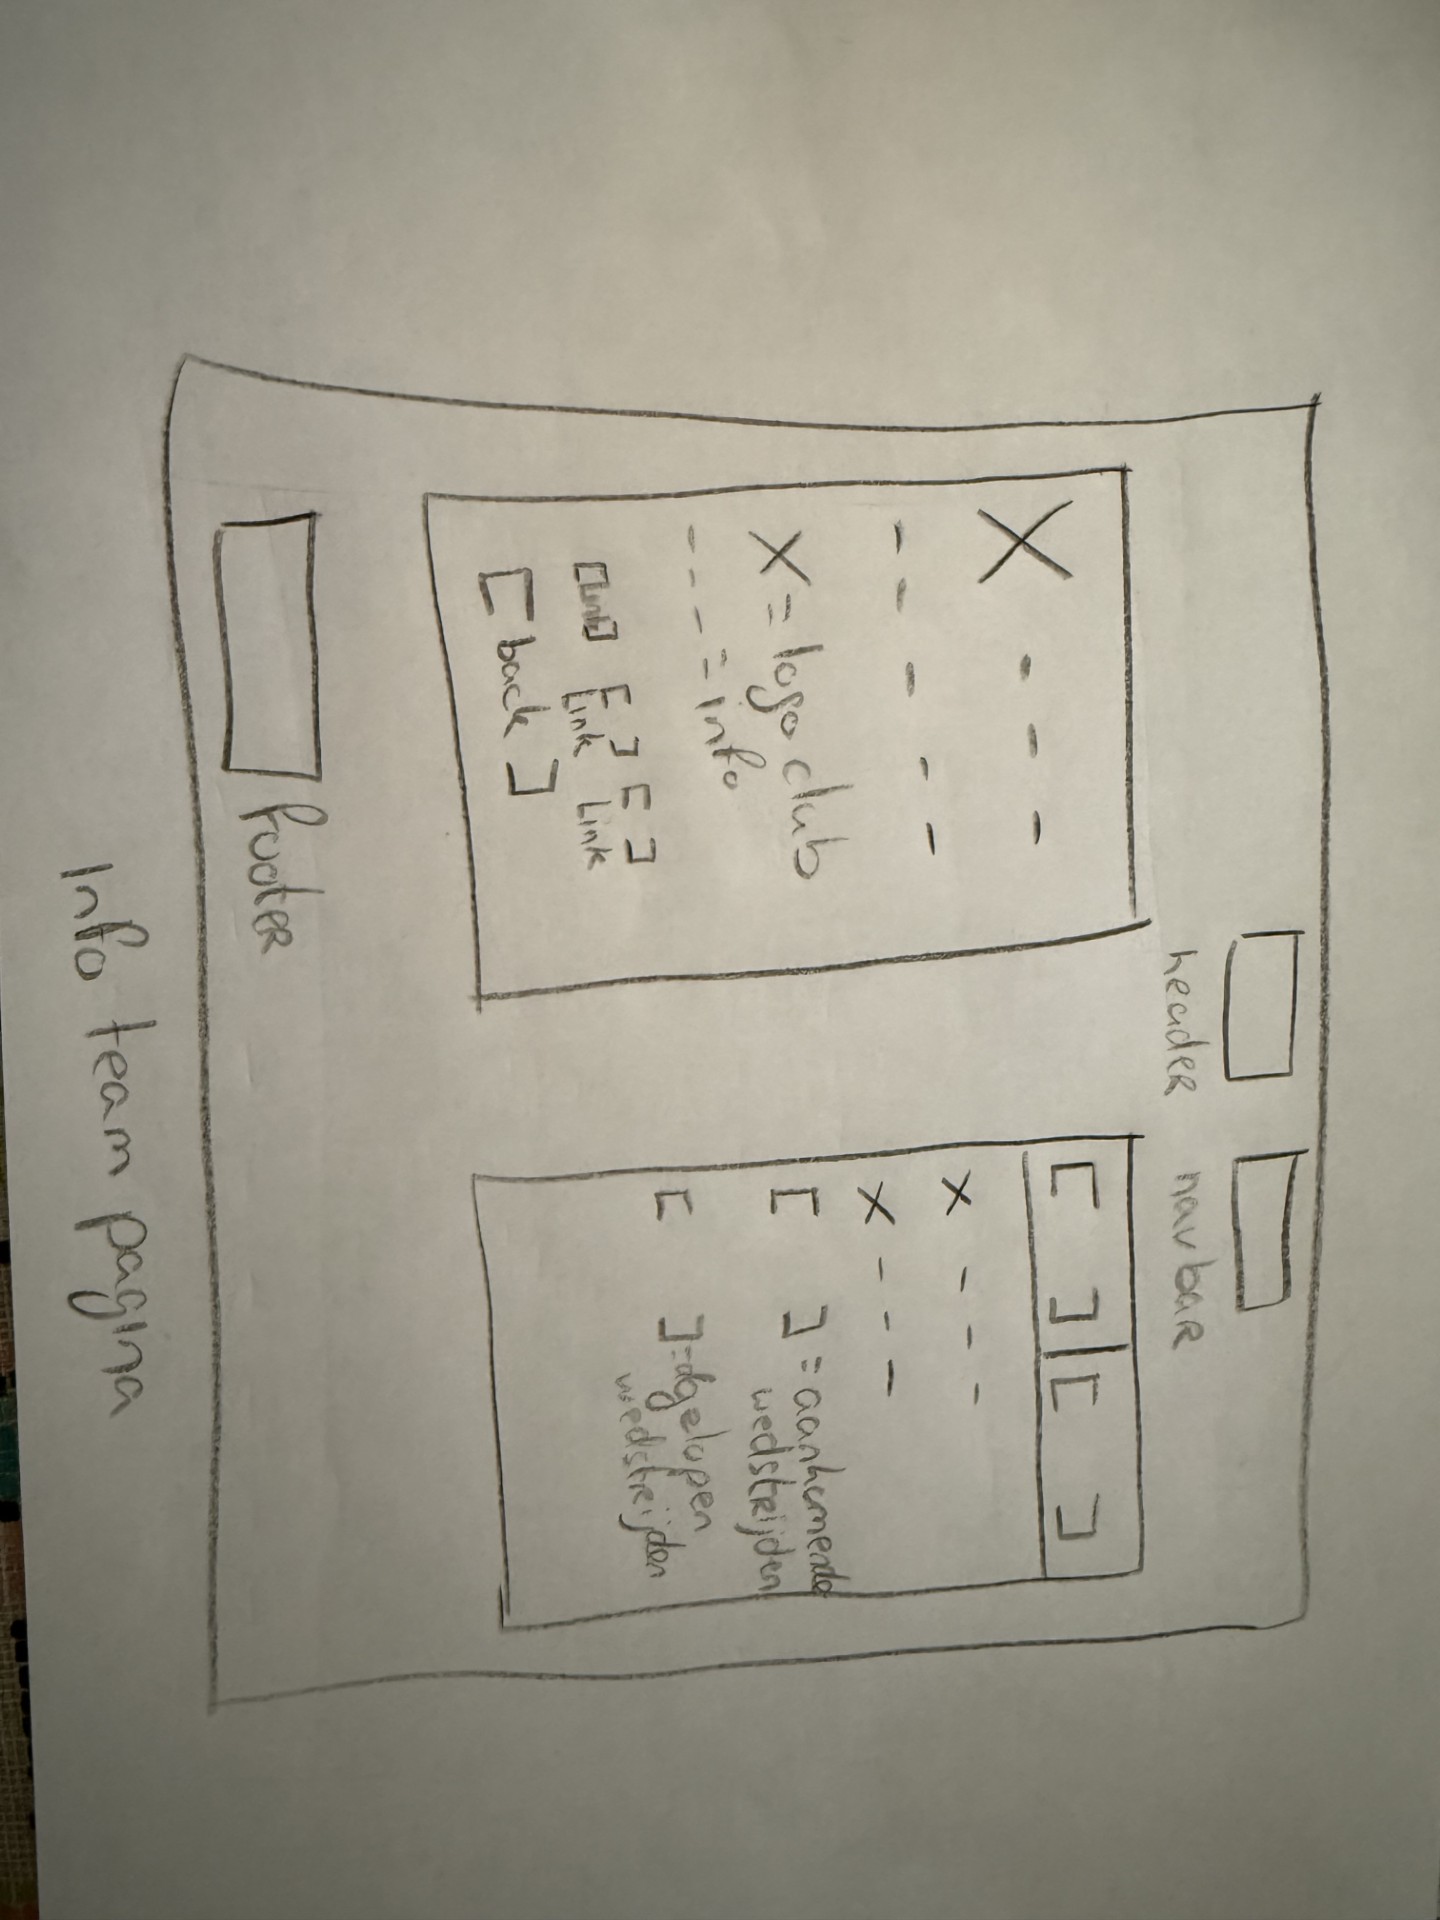 header navbar
X - - -
- - - - -
X = logo club
- - - - = info
[Link] [ ] [ ]
Link Link
[back]
[ ] [ ]
x - - -
x - - -
[ ] = aankomende
wedstrijden
[ ] = afgelopen
wedstrijden
footer
Info team pagina